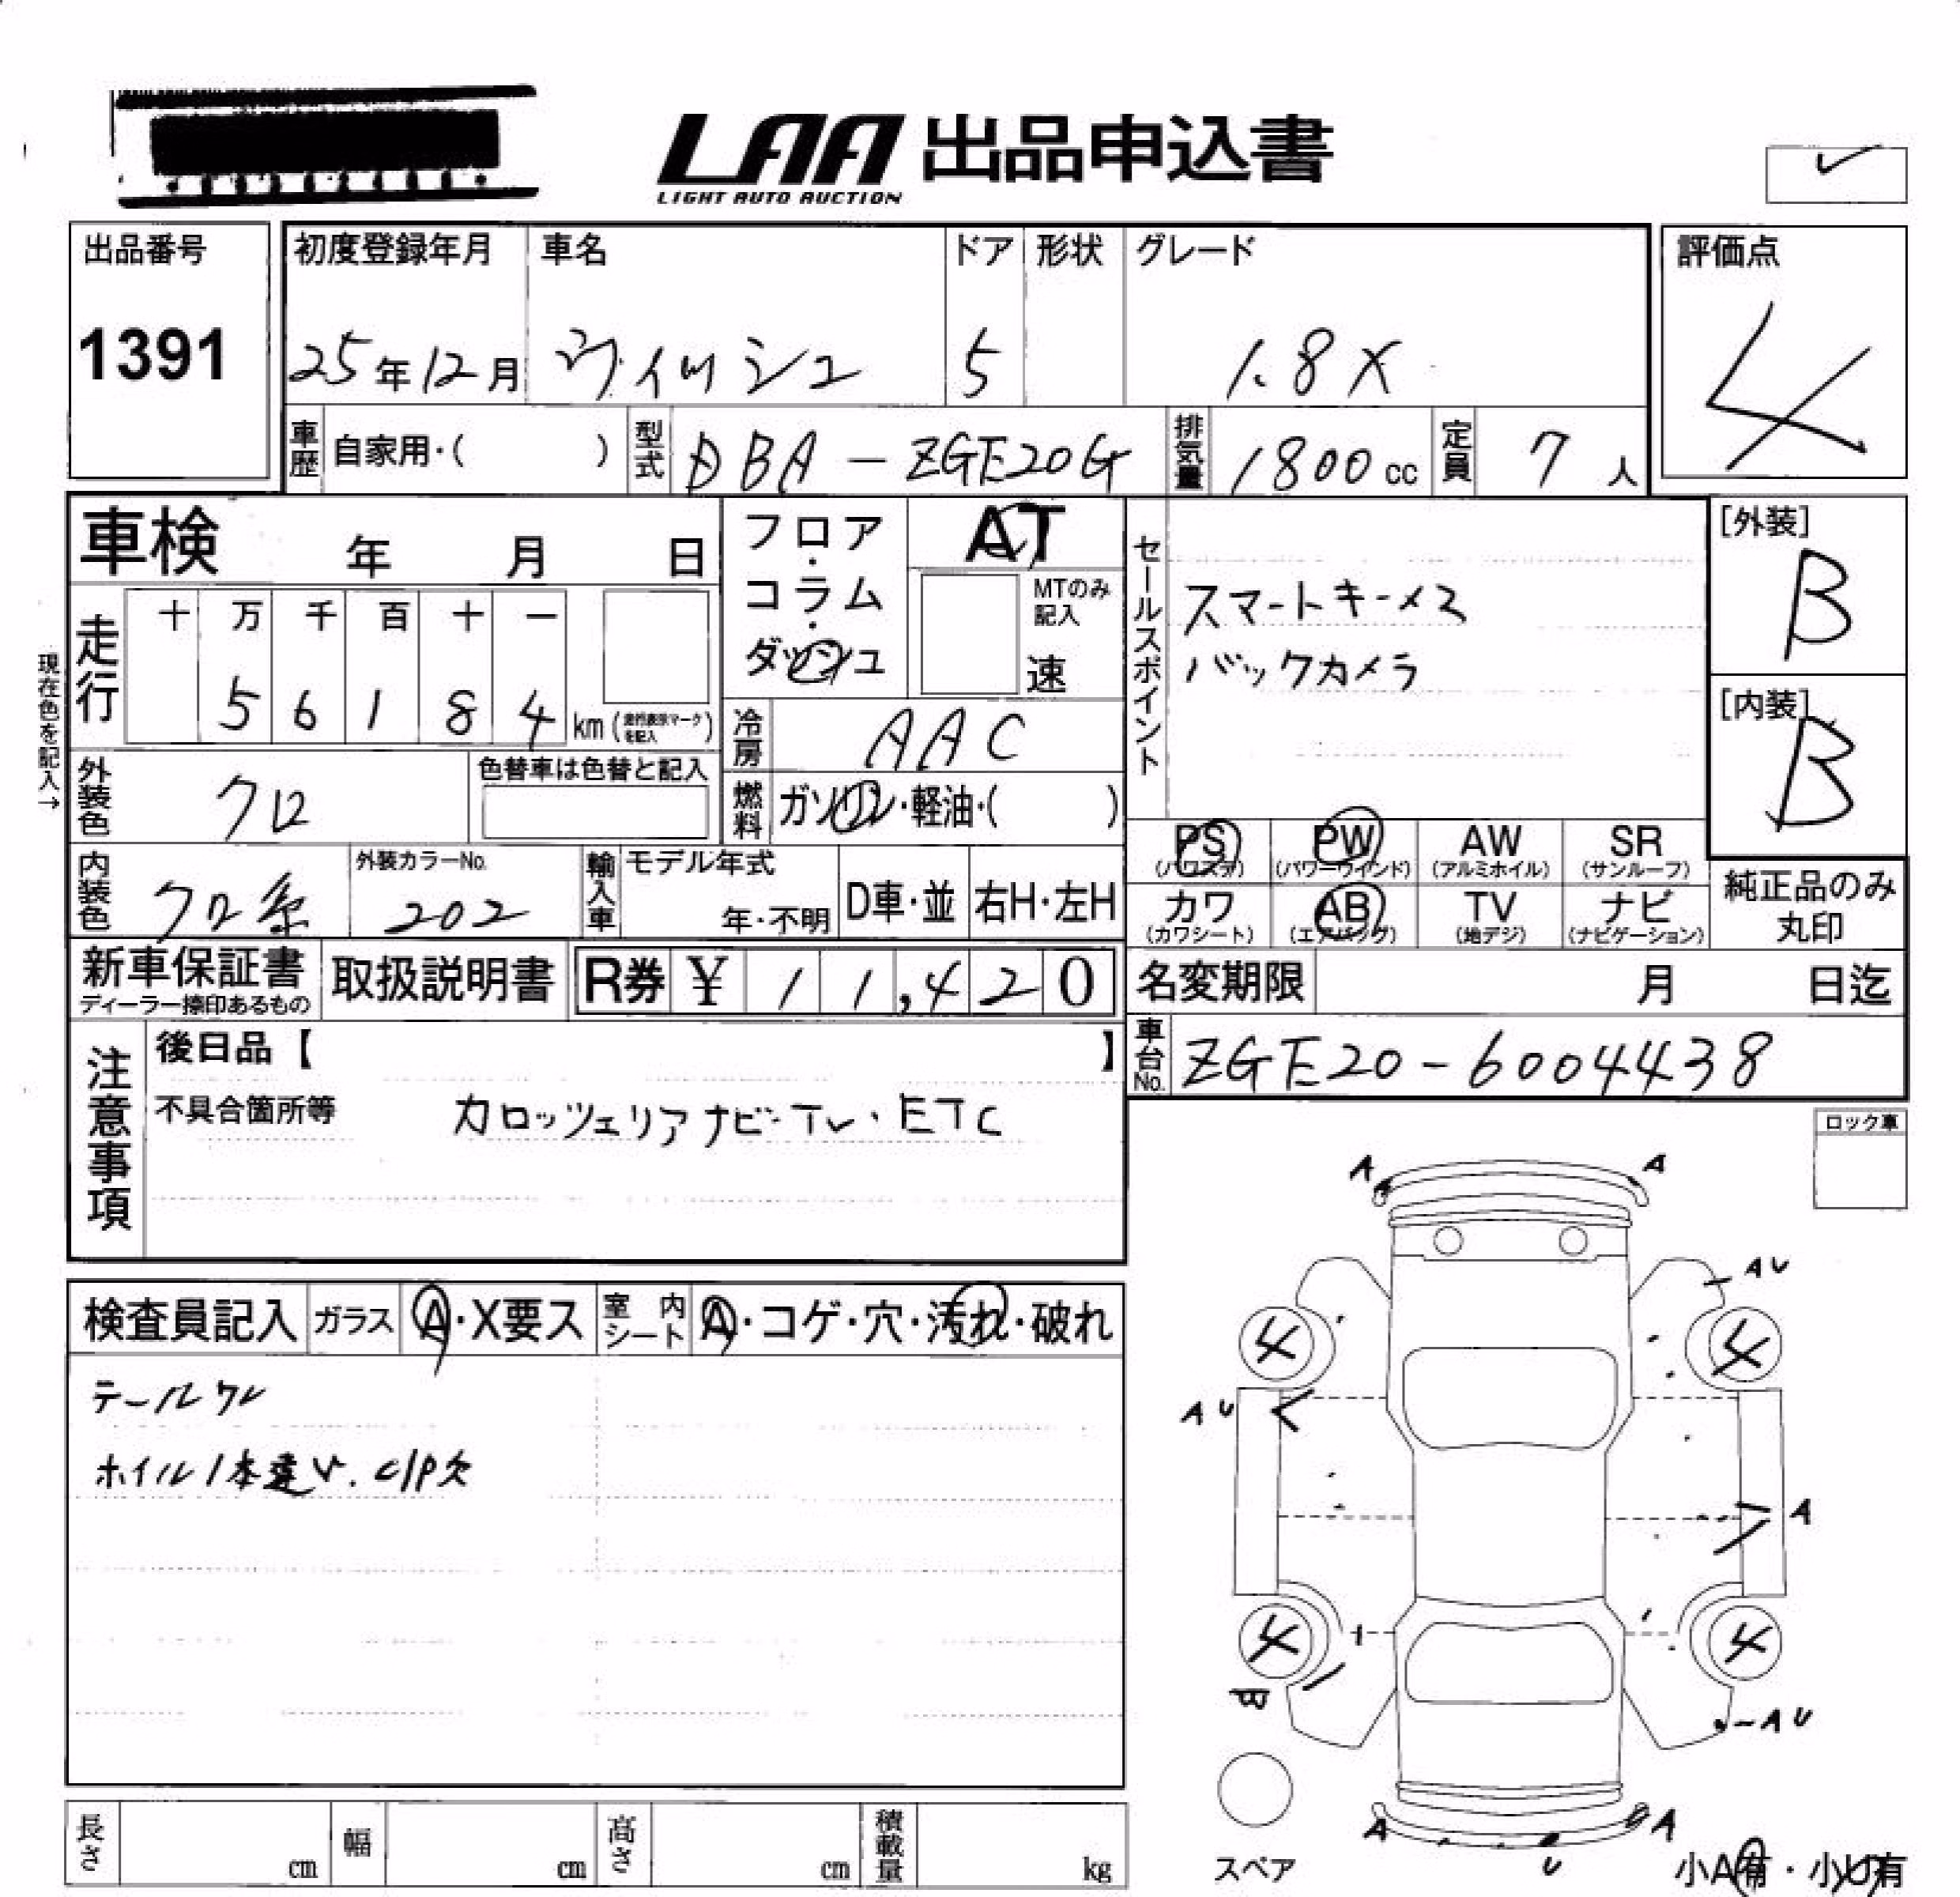 LAA 出品申込書
LIGHT AUTO AUCTION
出品番号
1391
初度登録年月
25年12月
車名
ウィッシュ
ドア
5
形状
グレード
1.8X
評価点
4
車歴 自家用・( )
型式 DBA-ZGE20G
排気量 1800cc
定員 7人
車検 年 月 日
フロア・コラム・ダッシュ
AT
MTのみ記入
速
セールスポイント
スマートキーメ2
バックカメラ
[外装]
B
[内装]
B
現在色を記入→
走行
十 万 千 百 十 一
5 6 1 8 4 km (走行表示マークを記入)
冷房 AAC
外装色 クロ
色替車は色替と記入
燃料 ガソリン・軽油・( )
PS (パワステ)
PW (パワーウインド)
AW (アルミホイル)
SR (サンルーフ)
内装色 クロ系
外装カラーNo.
202
輸入車 モデル年式
年・不明
D車・並
右H・左H
カワ (カワシート)
AB (エアバッグ)
TV (地デジ)
ナビ (ナビゲーション)
純正品のみ丸印
新車保証書
ディーラー捺印あるもの
取扱説明書
R券 ¥ 11,420
名変期限 月 日迄
車台No. ZGE20-6004438
注意事項
後日品【 】
不具合箇所等 カロッツェリアナビ・TV・ETC
ロック車
検査員記入
ガラス A・X要ス
室内シート A・コゲ・穴・汚れ・破れ
テールワレ
ホイル1本違い. C/P欠
A A
AU
4 4
AU
A
4 4
AU
A U A
スペア
小A有・小U有
長さ cm
幅 cm
高さ cm
積載量 kg